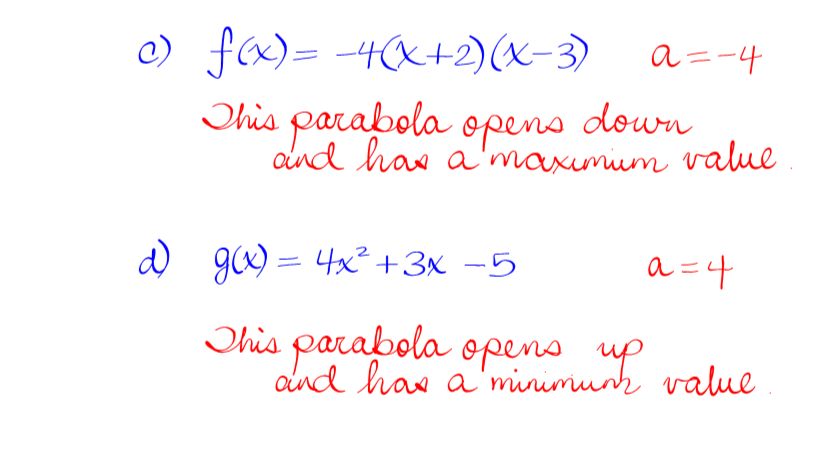 c) f(x) = -4(x+2)(x-3) a = -4
This parabola opens down
and has a maximum value.
d) g(x) = 4x² + 3x - 5 a = 4
This parabola opens up
and has a minimum value.